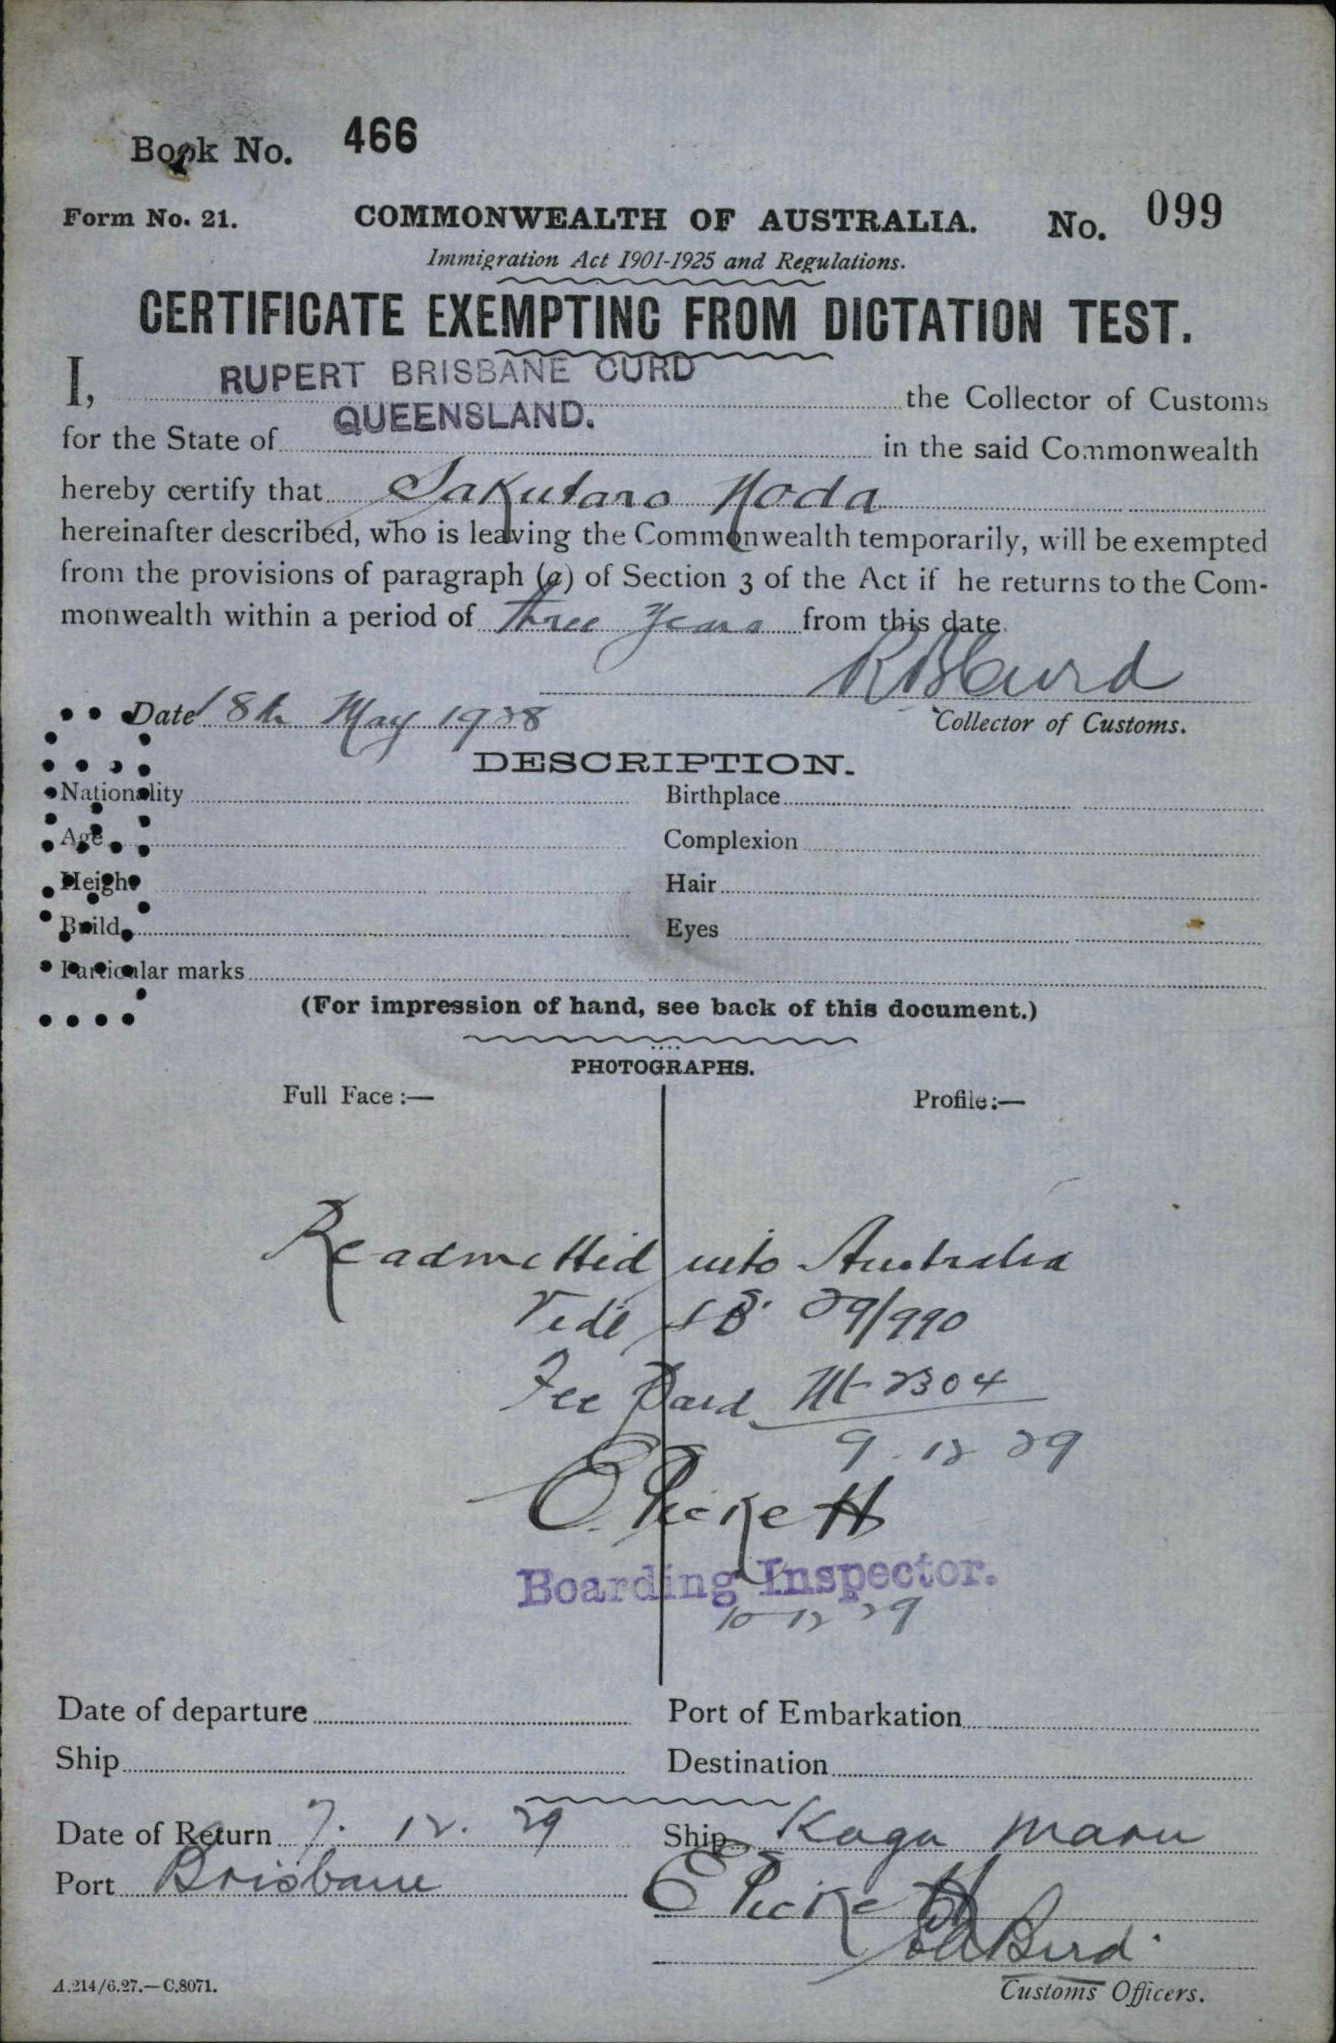 Book No. 466
Form No. 21. COMMONWEALTH OF AUSTRALIA. No. 099
Immigration Act 1901-1925 and Regulations.
CERTIFICATE EXEMPTING FROM DICTATION TEST.
I, RUPERT BRISBANE CURD the Collector of Customs
for the State of QUEENSLAND. in the said Commonwealth
hereby certify that Sakutaro Noda
hereinafter described, who is leaving the Commonwealth temporarily, will be exempted
from the provisions of paragraph (a) of Section 3 of the Act if he returns to the Com-
monwealth within a period of three years from this date.
R B Curd
Date 18th May 1928 Collector of Customs.
DESCRIPTION.
Nationality Birthplace
Age Complexion
Height Hair
Build Eyes
Particular marks
(For impression of hand, see back of this document.)
PHOTOGRAPHS.
Full Face:— Profile:—
Readmitted into Australia
Vide 29/990
Fee Paid 2304
9. 12 29
E. Pickett
Boarding Inspector.
10 12 29
Date of departure Port of Embarkation
Ship Destination
Date of Return 7. 12. 29 Ship Kaga Maru
Port Brisbane E Pickett
Bird
A.214/6.27.—C.8071. Customs Officers.